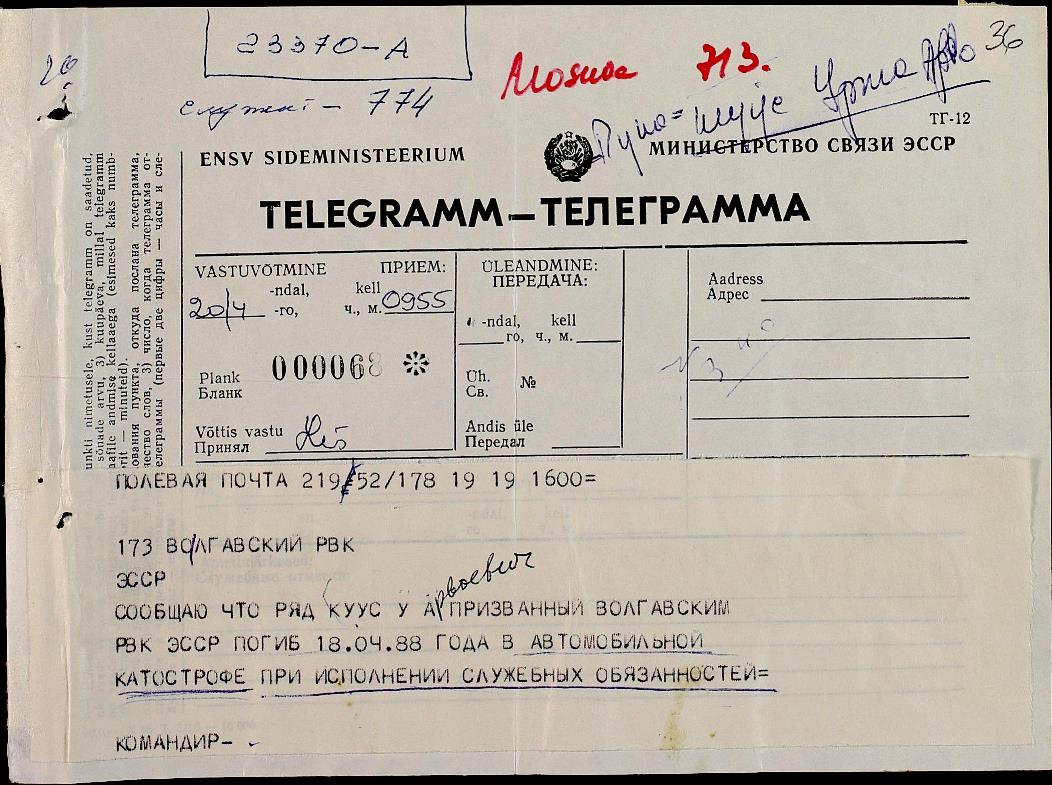 23370-А
Москва 713.
36
774
ТГ-12
ENSV SIDEMINISTEERIUM
МИНИСТЕРСТВО СВЯЗИ ЭССР
TELEGRAMM—ТЕЛЕГРАММА
VASTUVÕTMINE ПРИЕМ:
-ndal, kell
20/4 -го, ч., м. 0955
Plank 000068 *
Бланк
Võttis vastu
Принял
ÜLEANDMINE:
ПЕРЕДАЧА:
-ndal, kell
го, ч., м.
Üh. №
Св.
Andis üle
Передал
Aadress
Адрес
unkti nimetusele, kust telegramm on saadetud,
sõnade arvu, 3) kuupäeva, millal telegramm
andmise kellaaega (esimesed kaks numb-
minuteid).
ования пункта, откуда послана телеграмма,
чество слов, 3) число, когда телеграмма от-
елеграммы (первые две цифры — часы и сле-
ПОЛЕВАЯ ПОЧТА 219/52/178 19 19 1600=
173 ВОЛГАВСКИЙ РВК
ЭССР
СООБЩАЮ ЧТО РЯД КУУС У Арвоевич ПРИЗВАННЫЙ ВОЛГАВСКИМ
РВК ЭССР ПОГИБ 18.04.88 ГОДА В АВТОМОБИЛЬНОЙ
КАТОСТРОФЕ ПРИ ИСПОЛНЕНИИ СЛУЖЕБНЫХ ОБЯЗАННОСТЕЙ=
КОМАНДИР-